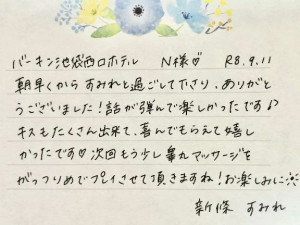 バーキン池袋西口ホテル N様♡ R8.9.11
朝早くからすみれと過ごして下さり、ありがと
うございました!話が弾んで楽しかったです♪
キスもたくさん出来て、喜んでもらえて嬉し
かったです♡次回もう少し睾丸マッサージを
がっつりめでプレイさせて頂きますね!お楽しみに☀
新條 すみれ